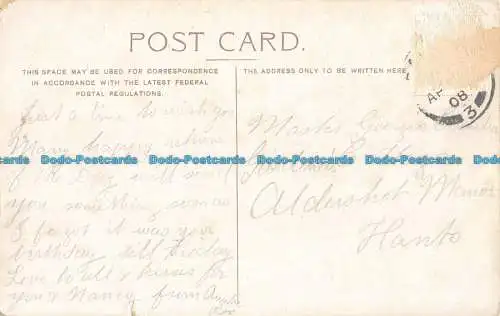 POST CARD.
THIS SPACE MAY BE USED FOR CORRESPONDENCE
IN ACCORDANCE WITH THE LATEST FEDERAL
POSTAL REGULATIONS.
THE ADDRESS ONLY TO BE WRITTEN HERE
AP
08
3
Just a line to wish you
Many happy returns
of the Day will send
you something
I forgot it was your
birthday till Friday
Love to all & kisses for
you & Nancy from
Aldershot Manor
Hants
Dodo-Postcards Dodo-Postcards Dodo-Postcards Dodo-Postcards Dodo-Postcards